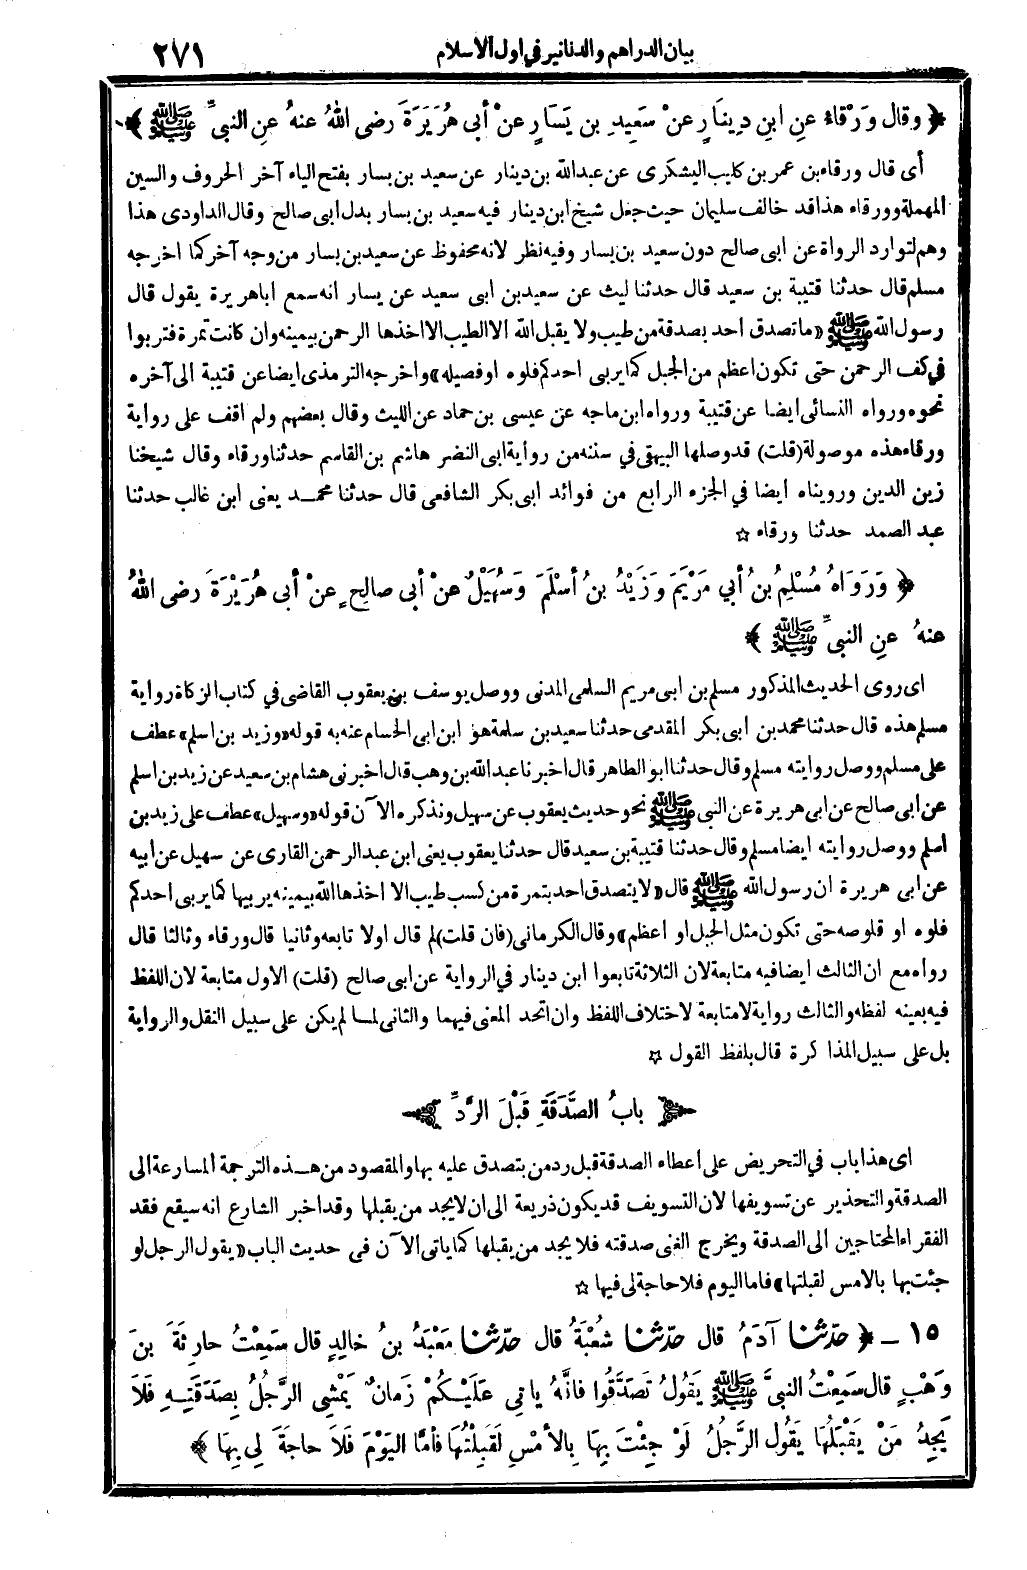 بيان الدراهم والدنانير في اول الاسلام ٢٧١
﴿ وقال وَرْقاءُ عنِ ابنِ دِينَارٍ عنْ سَعِيدِ بنِ يَسَارٍ عنْ أبي هُرَيْرَةَ رضى اللهُ عنهُ عنِ النبيِّ ﷺ ﴾
أى قال ورقاء بن عمر بن كليب اليشكرى عن عبدالله بن دينار عن سعيد بن يسار بفتح الياء آخر الحروف والسين
المهملة وورقاء هذا قد خالف سليمان حيث جعل شيخ ابن دينار فيه سعيد بن يسار بدل ابى صالح وقال الداودى هذا
وهم لتوارد الرواة عن ابى صالح دون سعيد بن يسار وفيه نظر لانه محفوظ عن سعيد بن يسار من وجه آخر كما اخرجه
مسلم قال حدثنا قتيبة بن سعيد قال حدثنا ليث عن سعيد بن ابى سعيد عن يسار انه سمع اباهريرة يقول قال
رسول الله ﷺ «ما تصدق احد بصدقة من طيب ولا يقبل الله الا الطيب الا اخذها الرحمن بيمينه وان كانت تمرة فتربوا
في كف الرحمن حتى تكون اعظم من الجبل كما يربى احدكم فلوه او فصيله» واخرجه الترمذى ايضا عن قتيبة الى آخره
نحوه ورواه النسائى ايضا عن قتيبة ورواه ابن ماجه عن عيسى بن حماد عن الليث وقال بعضهم ولم اقف على رواية
ورقاء هذه موصولة (قلت) قد وصلها البيهقى في سننه من رواية ابى النضر هاشم بن القاسم حدثنا ورقاء وقال شيخنا
زين الدين ورويناه ايضا في الجزء الرابع من فوائد ابى بكر الشافعى قال حدثنا محمد يعنى ابن غالب حدثنا
عبد الصمد حدثنا ورقاء ☆
﴿ وَرَوَاهُ مُسْلِمُ بنُ أبي مَرْيَمَ وَزَيْدُ بنُ أسْلَمَ وَسُهَيْلٌ عنْ أبى صالِحٍ عنْ أبى هُرَيْرَةَ رضى اللهُ
عنهُ عنِ النبيِّ ﷺ ﴾
اى روى الحديث المذكور مسلم بن ابى مريم السلمى المدنى ووصل يوسف بن يعقوب القاضى في كتاب الزكاة رواية
مسلم هذه قال حدثنا محمد بن ابى بكر المقدمى حدثنا سعيد بن سلمة هو ابن ابى الحسام عنه به قوله «وزيد بن اسلم» عطف
على مسلم ووصل روايته مسلم وقال حدثنا ابو الطاهر قال اخبرنا عبد الله بن وهب قال اخبرنى هشام بن سعيد عن زيد بن اسلم
عن ابى صالح عن ابى هريرة عن النبي ﷺ نحو حديث يعقوب عن سهيل ونذكره الآن قوله «وسهيل» عطف على زيد بن
أسلم ووصل روايته ايضا مسلم وقال حدثنا قتيبة بن سعيد قال حدثنا يعقوب يعنى ابن عبد الرحمن القارى عن سهيل عن ابيه
عن ابى هريرة ان رسول الله ﷺ قال «لا يتصدق احد بتمرة من كسب طيب الا اخذها الله بيمينه يربيها كما يربى احدكم
فلوه او قلوصه حتى تكون مثل الجبل او اعظم» وقال الكرمانى (فان قلت) لم قال اولا تابعه وثانيا قال ورقاء وثالثا قال
رواه مع ان الثالث ايضا فيه متابعة لان الثلاثة تابعوا ابن دينار في الرواية عن ابى صالح (قلت) الاول متابعة لان اللفظ
فيه بعينه لفظه والثالث رواية لا متابعة لاختلاف اللفظ وان اتحد المعنى فيهما والثانى لما لم يكن على سبيل النقل والرواية
بل على سبيل المذاكرة قال بلفظ القول ☆
﴿ بابُ الصَّدَقَةِ قَبْلَ الرَّدِّ ﴾
اى هذا باب في التحريض على اعطاء الصدقة قبل رد من يتصدق عليه بها والمقصود من هذه الترجمة المسارعة الى
الصدقة والتحذير عن تسويفها لان التسويف قد يكون ذريعة الى ان لا يجد من يقبلها وقد اخبر الشارع انه سيقع فقد
الفقراء المحتاجين الى الصدقة ويخرج الغنى صدقته فلا يجد من يقبلها كما يأتى الآن فى حديث الباب «يقول الرجل لو
جئت بها بالامس لقبلتها» فاما اليوم فلا حاجة لى فيها ☆
١٥ ـ ﴿ حدّثنا آدَمُ قال حدّثنا شُعْبَةُ قال حدّثنا مَعْبَدُ بنُ خالِدٍ قال سَمِعْتُ حارِثَةَ بنَ
وَهْبٍ قال سَمِعْتُ النبيَّ ﷺ يَقُولُ تَصَدَّقُوا فانَّهُ يأتى عَلَيْكُمْ زَمانٌ يَمْشِى الرَّجُلُ بِصَدَقَتِهِ فَلاَ
يَجِدُ مَنْ يَقْبَلُهَا يَقُولُ الرَّجُلُ لَوْ جِئْتَ بِهَا بِالأمْسِ لَقَبِلْتُهَا فأمَّا اليَوْمَ فَلاَ حاجَةَ لِى بِهَا ﴾